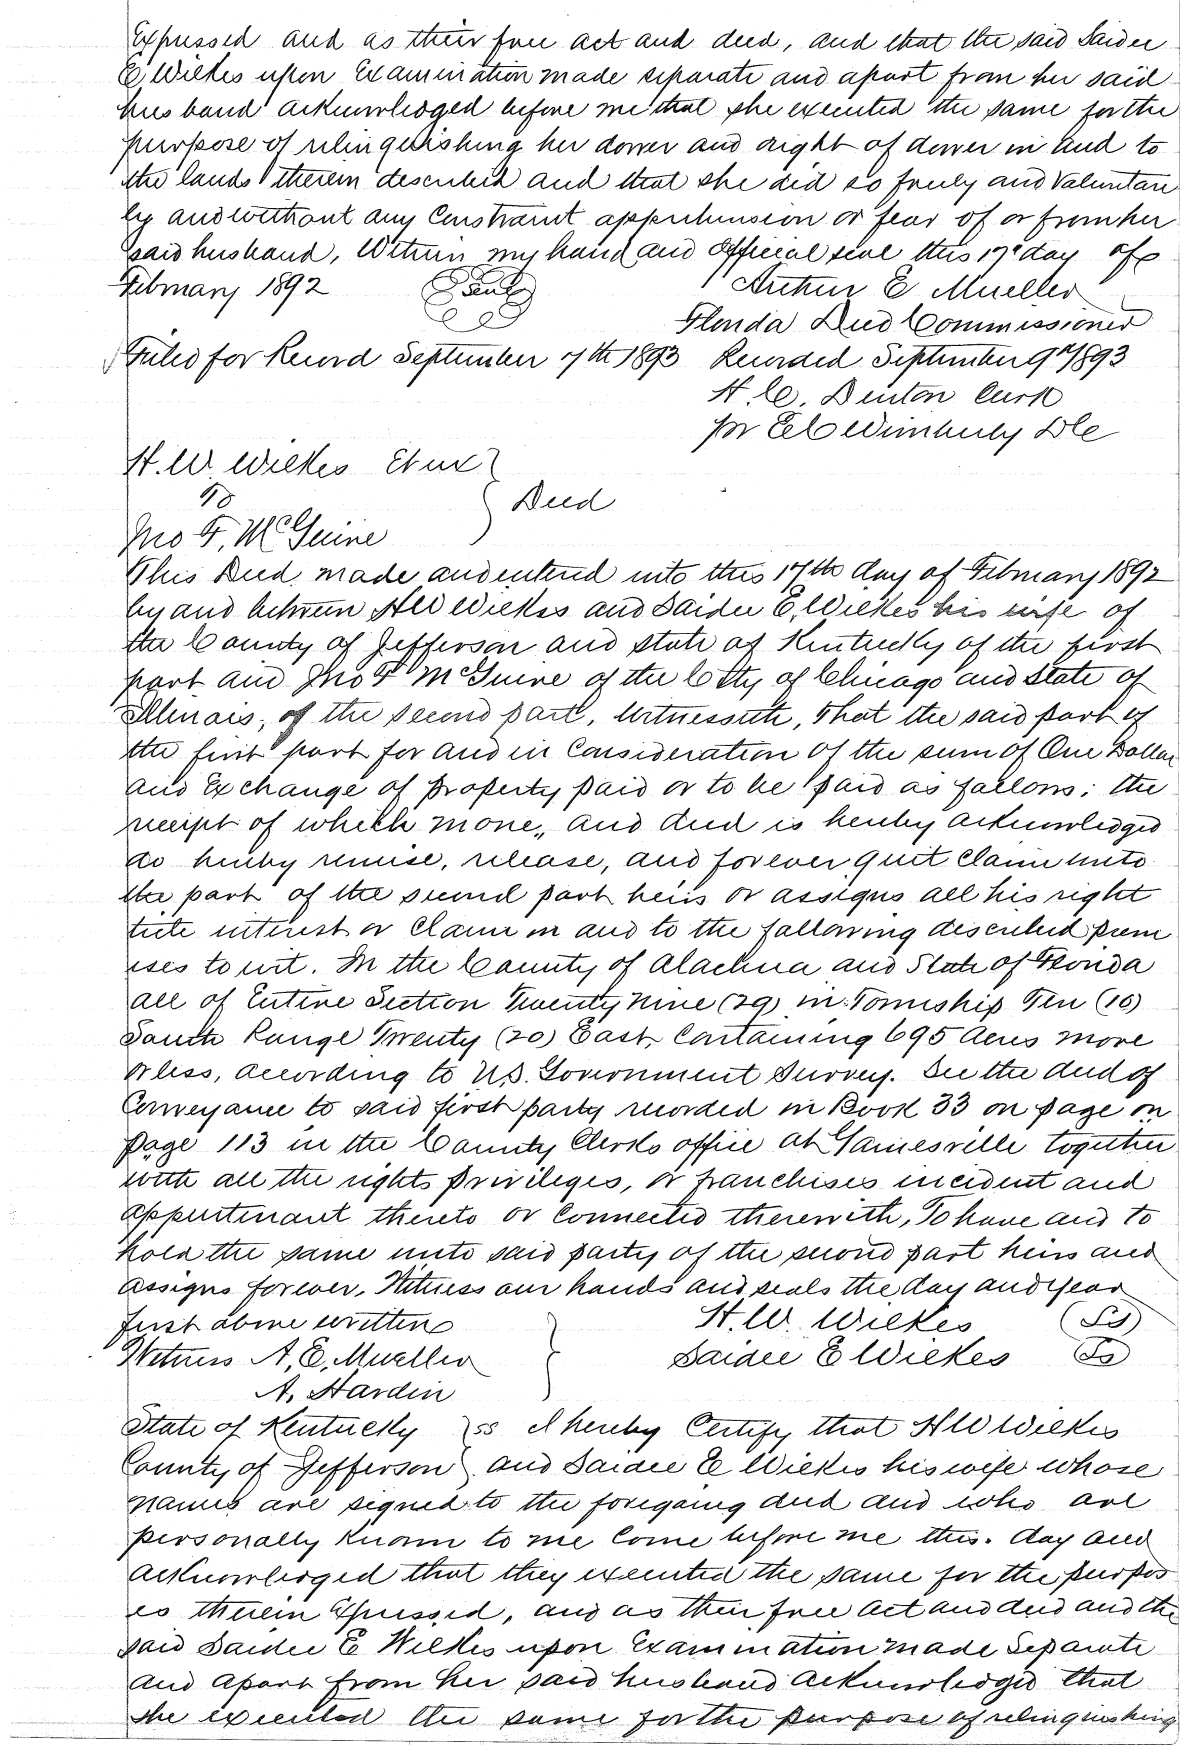 Expressed and as their free act and deed, and that the said Saidee
E Wilkes upon Examination made separate and apart from her said
husband acknowledged before me that she executed the same for the
purpose of relinquishing her dower and right of dower in and to
the lands therein described and that she did so freely and Voluntari
ly and without any Constraint apprehension or fear of or from her
said husband, Witness my hand and Official seal this 17" day of
February 1892 Seal Arthur E Mueller
Florida Deed Commissioner
Filed for Record September 7th 1893 Recorded September 9th 1893
H. C. Denton Clerk
pr E C Wimberly DC
H. W. Wilkes Et ux
To } Deed
Jno F. McGuire
This Deed made and entered into this 17th day of February 1892
by and between H W Wilkes and Saidee E. Wilkes his wife of
the County of Jefferson and State of Kentucky of the first
part and Jno F McGuire of the City of Chicago and State of
Illinois, of the second part, Witnesseth, That the said part of
the first part for and in Consideration of the sum of One Dollar
and Exchange of property paid or to be paid as follows: the
receipt of which mone,, and deed is hereby acknowledged
do hereby remise, release, and forever quit Claim unto
the part of the second part heirs or assigns all his right
title interest or Claim in and to the following described prem
ises to wit. In the County of Alachua and State of Florida
all of Entire Section Twenty Nine (29) in Township Ten (10)
South Range Twenty (20) East, Containing 695 Acres more
or less, according to U.S. Government Survey. See the deed of
Conveyance to said first party recorded in Book 33 on page on
page 113 in the County Clerks office at Gainesville together
with all the rights privileges, or franchises incident and
appurtenant thereto or Connected therewith, To have and to
hold the same unto said party of the second part heirs and
assigns forever. Witness our hands and seals the day and year
first above written } H. W. Wilkes (Ls)
Witness A. E. Mueller Saidee E Wilkes (Ls)
A. Hardin
State of Kentucky } ss I hereby Certify that H W Wilkes
County of Jefferson } and Saidee E Wilkes his wife whose
names are signed to the foregoing deed and who are
personally Known to me Come before me this. day and
acknowledged that they executed the same for the purpos
es therein Expressed, and as their free act and deed and the
said Saidee E Wilkes upon Examination made Separate
and apart from her said husband acknowledged that
she executed the same for the purpose of relinquishing